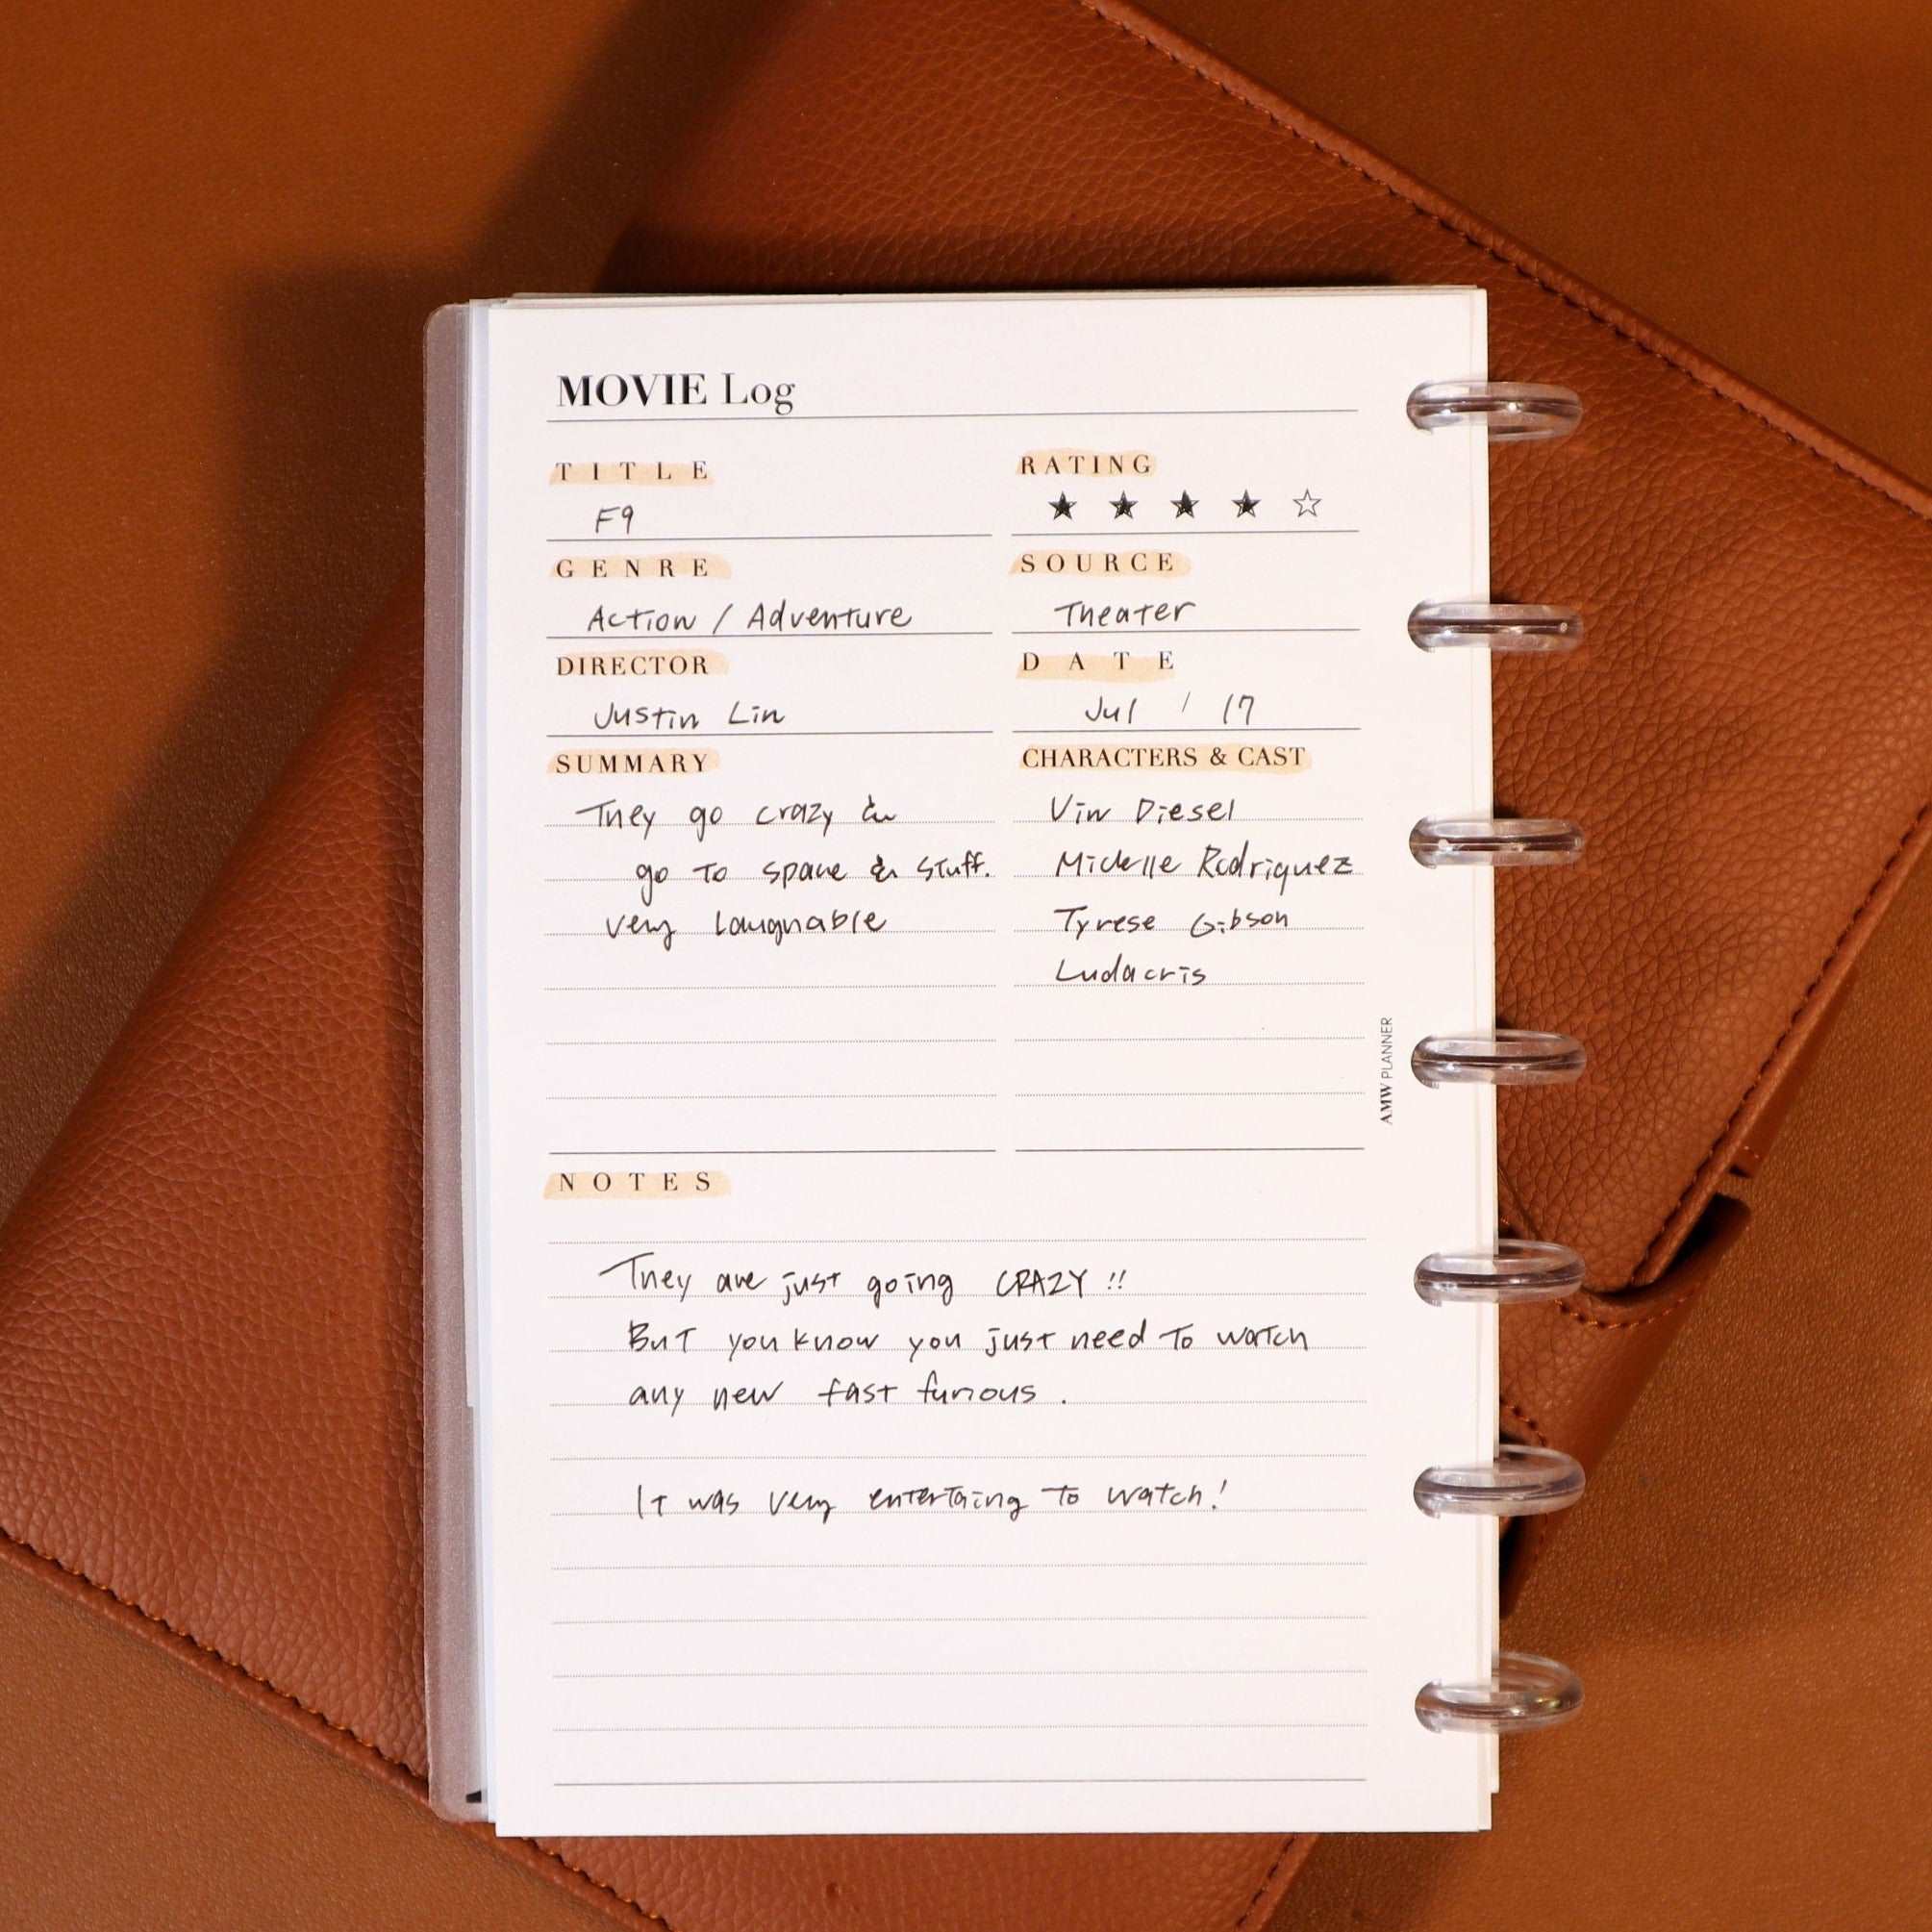 MOVIE Log
TITLE
F9
RATING
★ ★ ★ ★ ☆
GENRE
Action / Adventure
SOURCE
Theater
DIRECTOR
Justin Lin
DATE
Jul / 17
SUMMARY
They go crazy &
go to space & stuff.
very laughable
CHARACTERS & CAST
Vin Diesel
Michelle Rodriquez
Tyrese Gibson
Ludacris
AMW PLANNER
NOTES
They are just going CRAZY !!
But you know you just need to watch
any new fast furious .
It was very entertaing to watch!